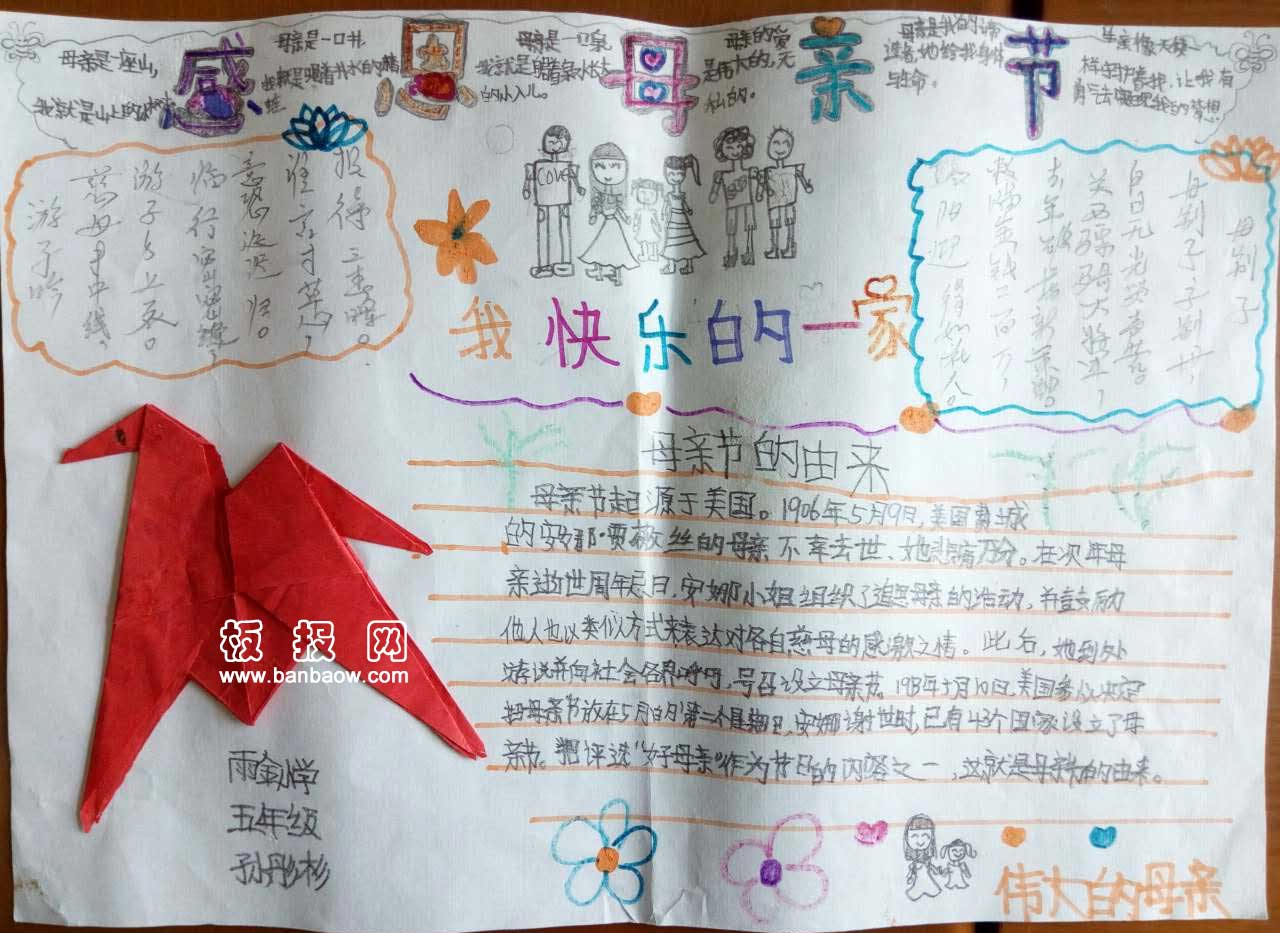 感恩母亲节
母亲是一座山,
我就是山上的
母亲是一口井,
我就是喝着井水的
母亲是一口泉,
我就是喝着泉水长大
的小人儿。
母亲的爱
是伟大的,无
私的。
母亲是我的
她给我身体
与生命。
母亲像天使
一样守护着我,让我有
勇气去实现我的梦想
游子吟
慈母手中线,
游子身上衣。
临行密密缝,
意恐迟迟归。
谁言寸草心,
报得三春晖。
我快乐的一家
母别子
母别子,子别母
白日无光哭声苦。
关西骠骑大将军,
去年破虏新策勋。
敕赐金钱二百万,
洛阳迎得如花人。
母亲节的由来
母亲节起源于美国。1906年5月9日,美国费城
的安娜·贾薇丝的母亲不幸去世、她悲痛万分。在次年母
亲逝世周年忌日,安娜小姐组织了追思母亲的活动,并鼓励
他人也以类似方式来表达对各自慈母的感激之情。此后,她到处
游说并向社会各界呼吁,号召设立母亲节。1913年5月10日,美国参议院决定
把母亲节放在5月的第二个星期日,安娜谢世时,已有43个国家设立了母
亲节。把评选"好母亲"作为节日的内容之一,这就是母亲节的由来。
板报网
www.banbaow.com
五年级
伟大的母亲